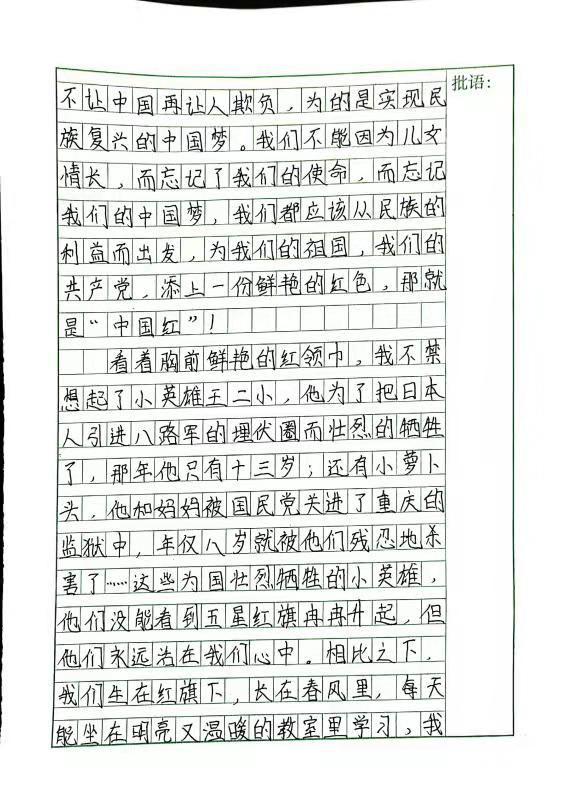 批语：
不让中国再让人欺负，为的是实现民
族复兴的中国梦。我们不能因为儿女
情长，而忘记了我们的使命，而忘记
我们的中国梦，我们都应该从民族的
利益而出发，为我们的祖国，我们的
共产党，添上一份鲜艳的红色，那就
是“中国红”！
看着胸前鲜艳的红领巾，我不禁
想起了小英雄王二小，他为了把日本
人引进八路军的埋伏圈而壮烈的牺牲
了，那年他只有十三岁；还有小萝卜
头，他和妈妈被国民党关进了重庆的
监狱中，年仅八岁就被他们残忍地杀
害了……这些为国壮烈牺牲的小英雄，
他们没能看到五星红旗冉冉升起，但
他们永远活在我们心中。相比之下，
我们生在红旗下，长在春风里，每天
能坐在明亮又温暖的教室里学习，我